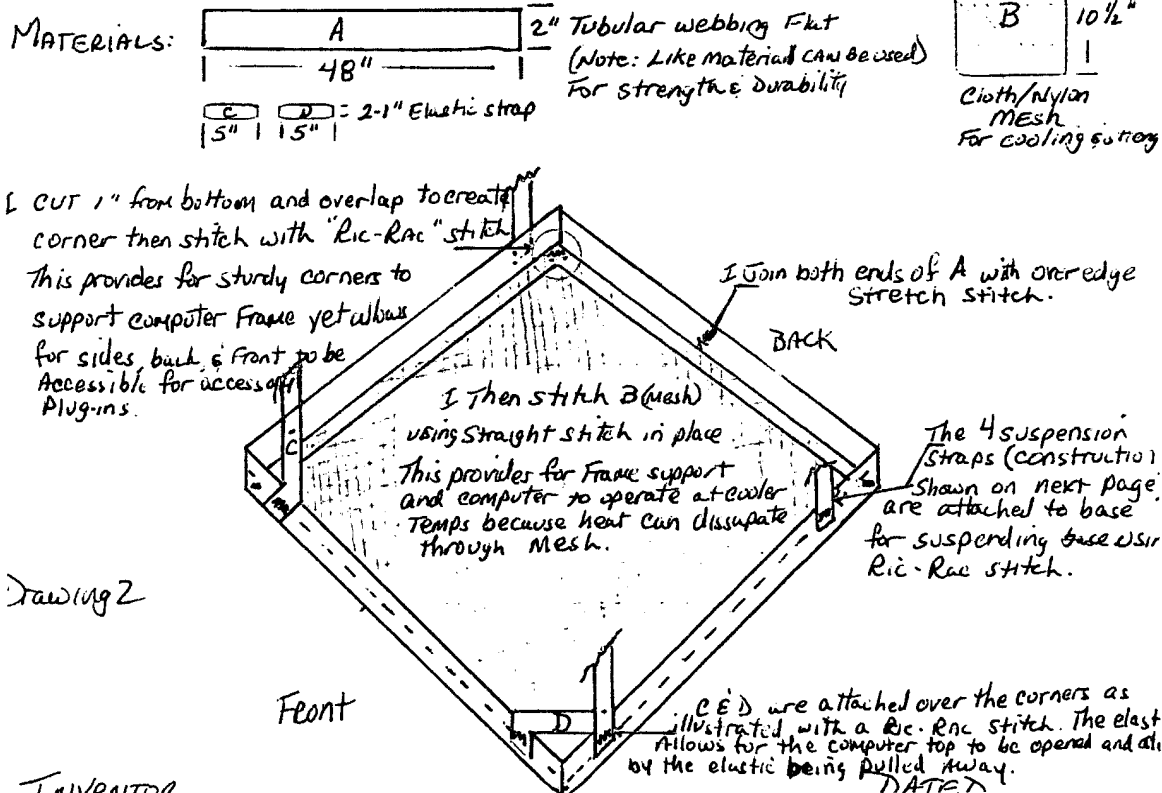 MATERIALS:
A
2" Tubular webbing Flat
48"
(Note: Like material CAN be used)
For strength & Durability
B
10 1/2"
Cloth/Nylon
MESH
For cooling &
C D = 2-1" Elastic strap
5" 5"
I CUT 1" from bottom and overlap to create
corner then stitch with "Ric-Rac" stitch
This provides for sturdy corners to
support computer Frame yet allows
for sides, back & Front to be
Accessible for accessory
Plug-ins.
I Join both ends of A with overedge
Stretch stitch.
BACK
I Then stitch B (mesh)
using Straight stitch in place
This provides for Frame support
and computer to operate at cooler
Temps because heat can dissapate
through Mesh.
C
The 4 suspension
straps (constructio
shown on next page
are attached to base
for suspending base usin
Ric-Rac stitch.
Drawing 2
Front
D
C & D are attached over the corners as
illustrated with a Ric-Rac stitch. The elast
Allows for the computer top to be opened and
by the elastic being pulled Away.
INVENTOR
DATED